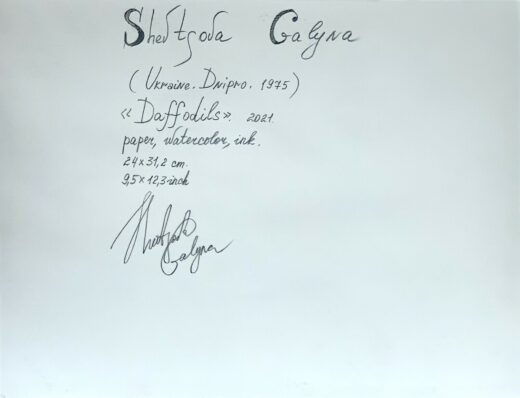 Shevtsova Galyna
(Ukraine. Dnipro. 1975)
«Daffodils». 2021.
paper, watercolor, ink.
24x31,2 cm.
9,5x12,3 inch
Galyna